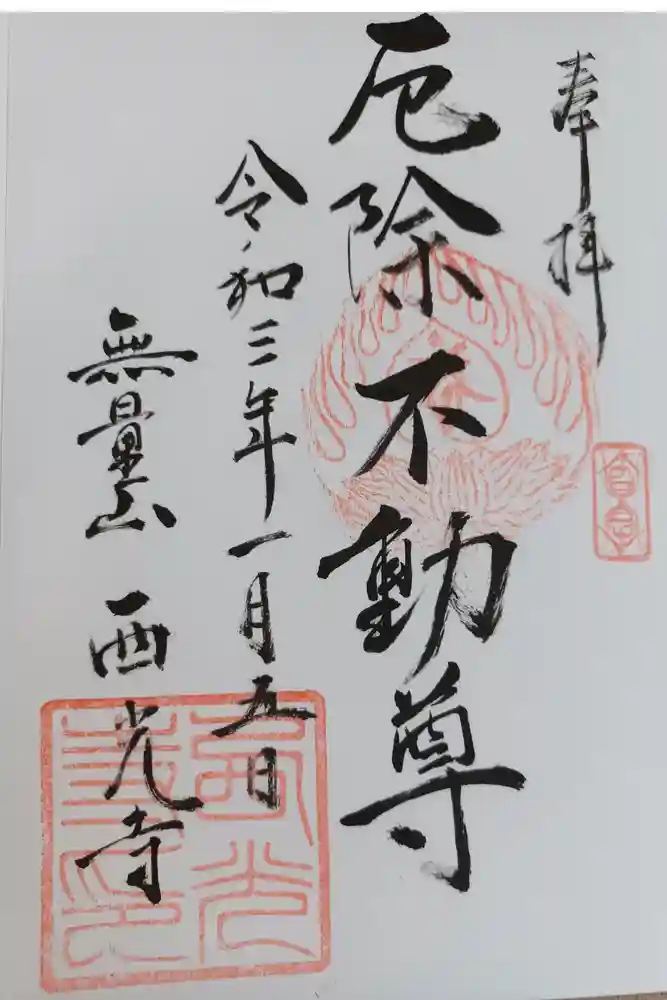 奉拝
厄除不動尊
令和三年一月五日
無量山 西光寺